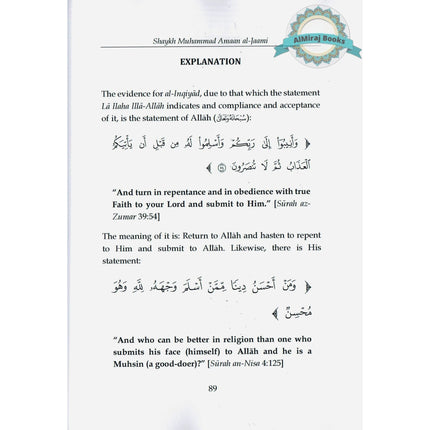 AlMiraj Books
Shaykh Muhammad Amaan al-Jaami
EXPLANATION
The evidence for al-Inqiyâd, due to that which the statement
Lâ Ilaha Illâ-Allâh indicates and compliance and acceptance
of it, is the statement of Allâh (سُبْحَانَهُ وَتَعَالَى):
﴿ وَأَنِيبُوٓا۟ إِلَىٰ رَبِّكُمْ وَأَسْلِمُوا۟ لَهُۥ مِن قَبْلِ أَن يَأْتِيَكُمُ
ٱلْعَذَابُ ثُمَّ لَا تُنصَرُونَ ﴾
“And turn in repentance and in obedience with true
Faith to your Lord and submit to Him.” [Sûrah az-
Zumar 39:54]
The meaning of it is: Return to Allâh and hasten to repent
to Him and submit to Allâh. Likewise, there is His
statement:
﴿ وَمَنْ أَحْسَنُ دِينًا مِّمَّنْ أَسْلَمَ وَجْهَهُۥ لِلَّهِ وَهُوَ
مُحْسِنٌ ﴾
“And who can be better in religion than one who
submits his face (himself) to Allâh and he is a
Muhsin (a good-doer)?” [Sûrah an-Nisa 4:125]
89